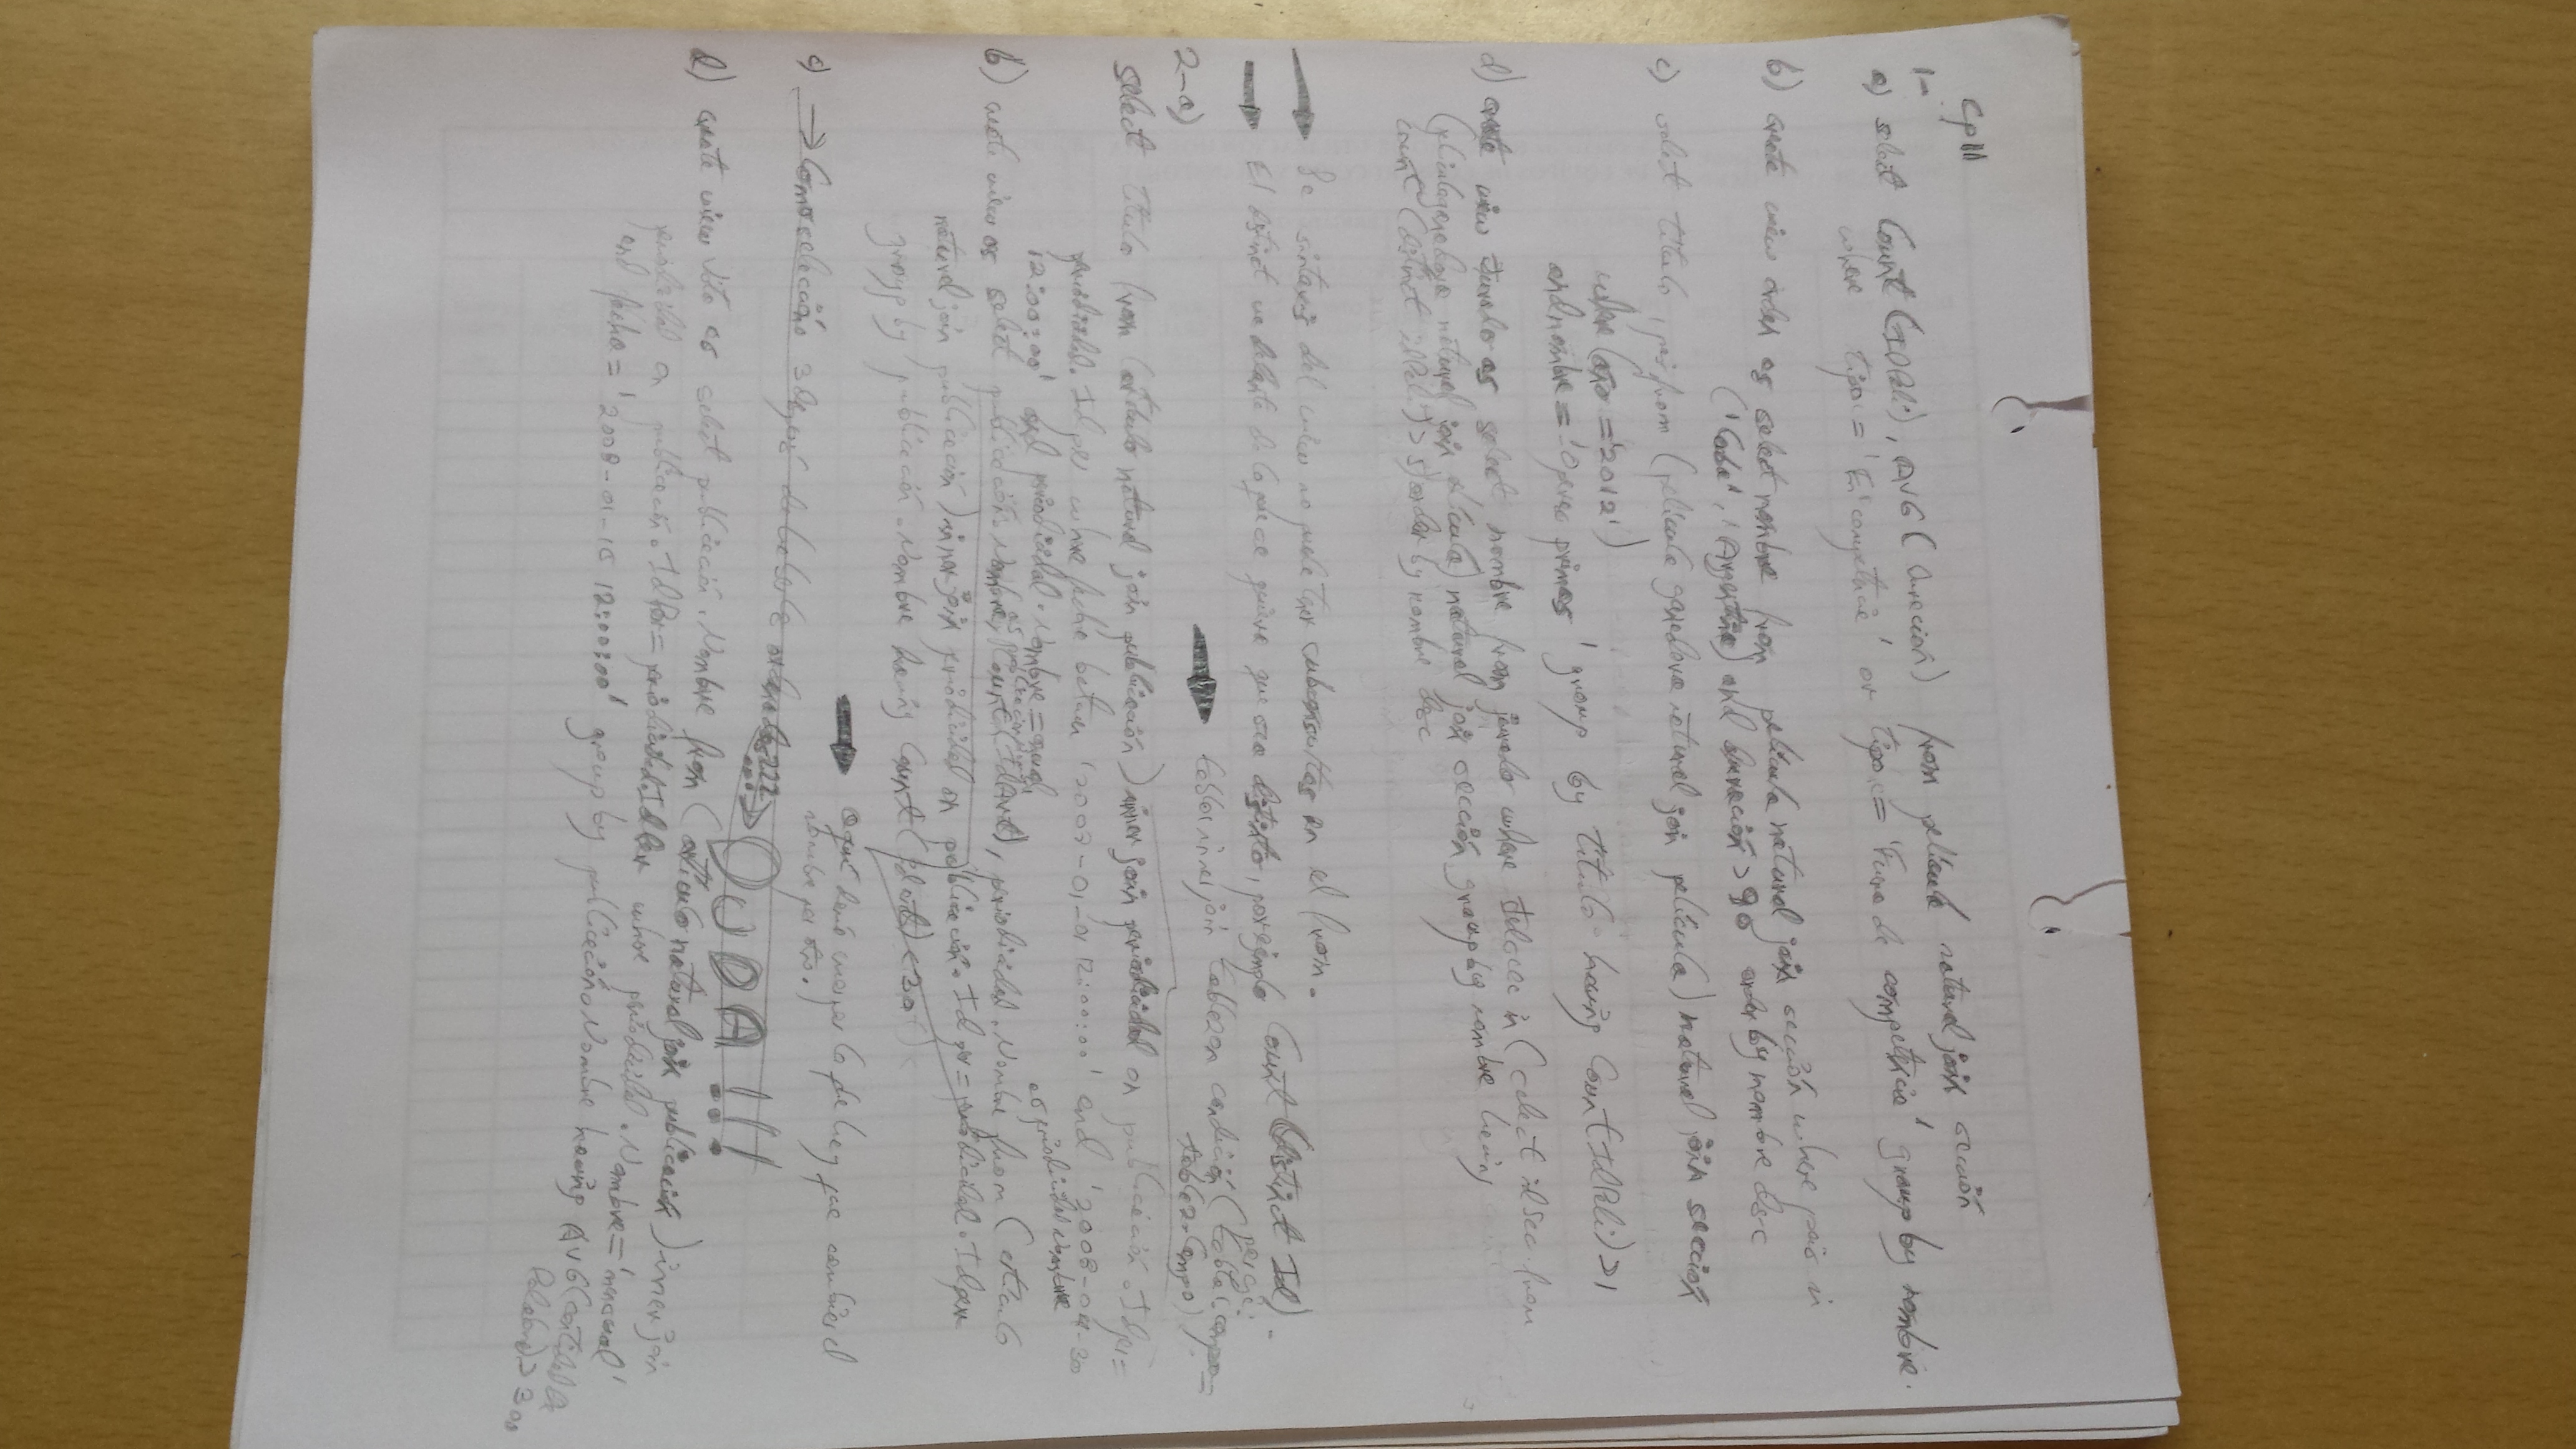 Cp11
1-
a) select Count (IDPeli), AVG (duración) from película natural join sección
where tipoc = 'En competencia' or tipoc = 'Fuera de competencia' group by nombre.
b) create view orden as select nombre from película natural join sección where país in
('Cuba', 'Argentina') and duración > 90 order by nombre desc
c) select titulo, país from (película ganadora natural join película) natural join sección
where (año = '2012')
and nombre = 'Operas primas' group by titulo having Count (IdPeli) > 1
d) create view jurado as select nombre from jurado where idsecc in (select idsec from
(película ganadora natural join película) natural join sección group by nombre having
count (distinct idPeli) > 5) order by nombre desc
Se sintaxis del view no puede tener subconsultas en el from.
El distinct va delante de lo que se quiere que sea distinto, por ejemplo Count (distinct Id)
2-a)
tabla1 inner join tabla2 on condición (tabla1.campo =
tabla2.campo)
select titulo from (articulo natural join publicación) inner join periodicidad on publicación.Idper =
periodicidad.Idper where fecha between '2007-01-01 12:00:00' and '2008-04-30
12:00:00' and periodicidad.nombre = anual
as periodicidad nombre
b) create view as select publicación.Nombre, Count (IdArt), periodicidad.Nombre from (articulo
natural join publicación) inner join periodicidad on publicación.Idper = periodicidad.Idper
group by publicación.Nombre having Count (IdArt) < 30
aquí daría mejor lo de hay que cambiar el
nombre por otro.
c) → Como selecciono 3
DUDA !!!
d) create view vista as select publicación.Nombre from (articulo natural join publicación) inner join
periodicidad on publicación.Idper = periodicidad.Idper where periodicidad.Nombre = 'mensual'
and fecha = '2008-01-10 12:00:00' group by publicación.Nombre having AVG (cantidad de
Palabras) > 300